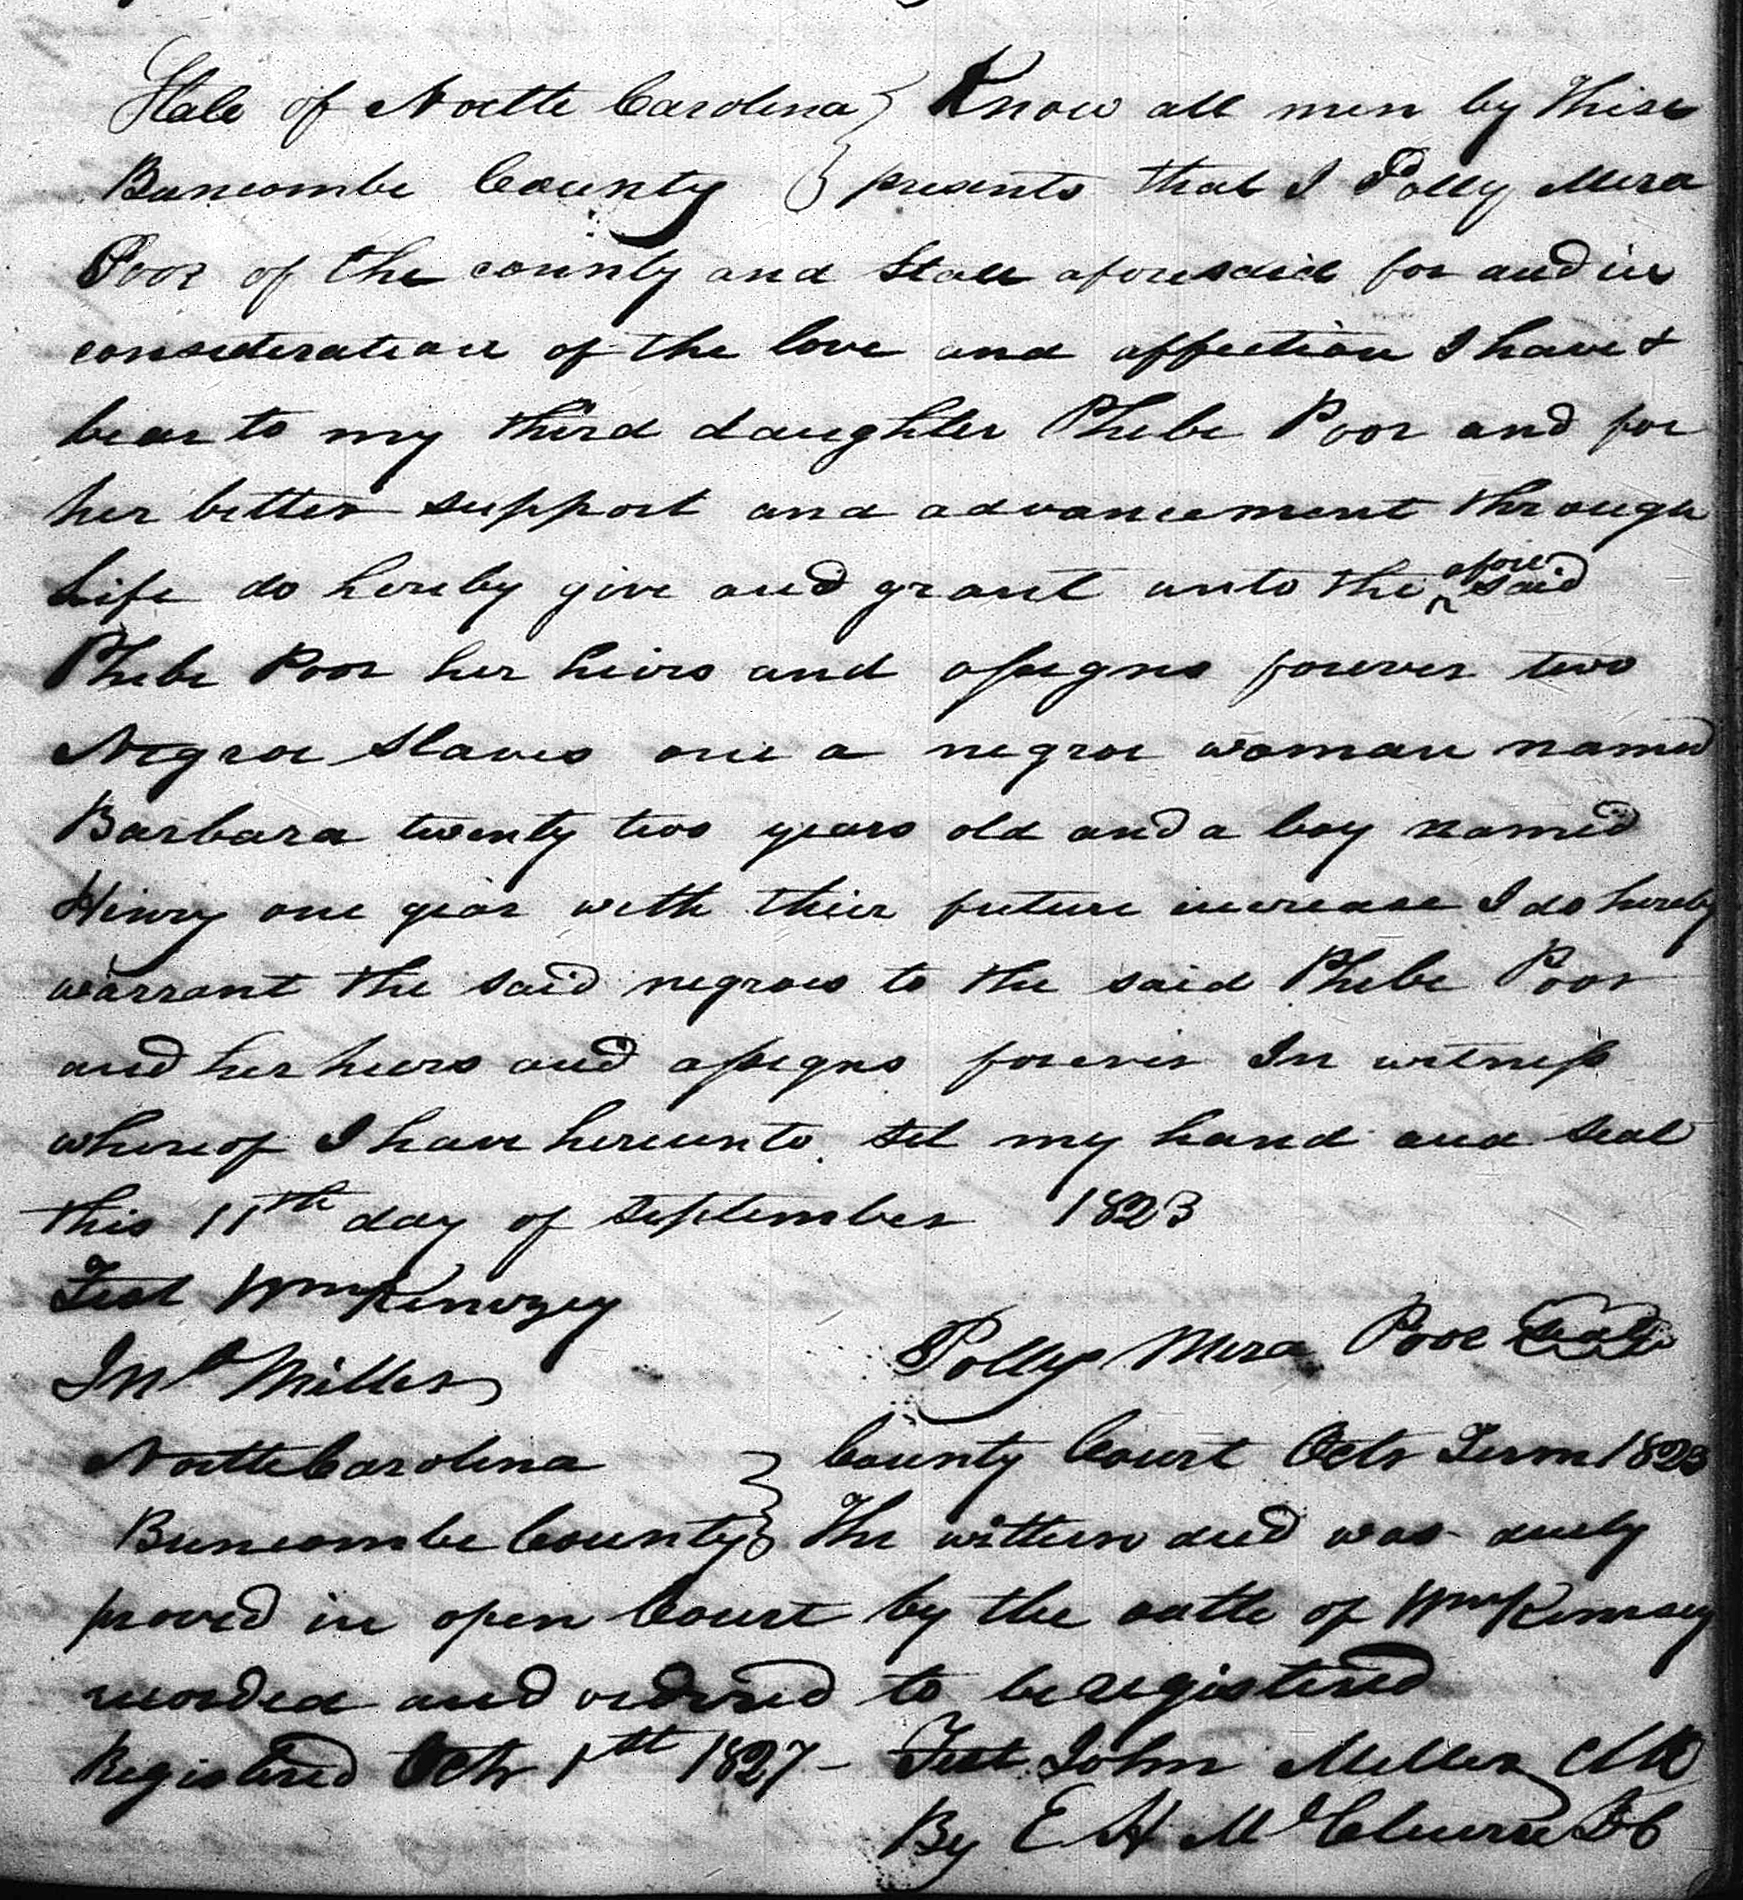 State of North Carolina } Know all men by these
Buncombe County } presents that I Polly Mira
Poor of the county and State aforesaid for and in
consideration of the love and affection I have &
bear to my third daughter Phebe Poor and for
her better support and advancement through
Life do hereby give and grant unto the afore said
Phebe Poor her heirs and assigns forever two
Negroe Slaves one a negroe woman named
Barbara twenty two years old and a boy named
Hinry one year with thier future increase I do hereby
warrant the said negroes to the said Phebe Poor
and her heirs and assigns forever In witness
whereof I have hereunto set my hand and seal
this 11th day of September 1823
Test Wm Kimzey
Jno Miller
Polly Mira Poor Seal
North Carolina } County Court Octr Term 1823
Buncombe County } The within deed was duely
proved in open Court by the oath of Wm Kimsey
recorded and ordered to be registered
Registered Octr 1th 1827 - Test John Miller
By E H